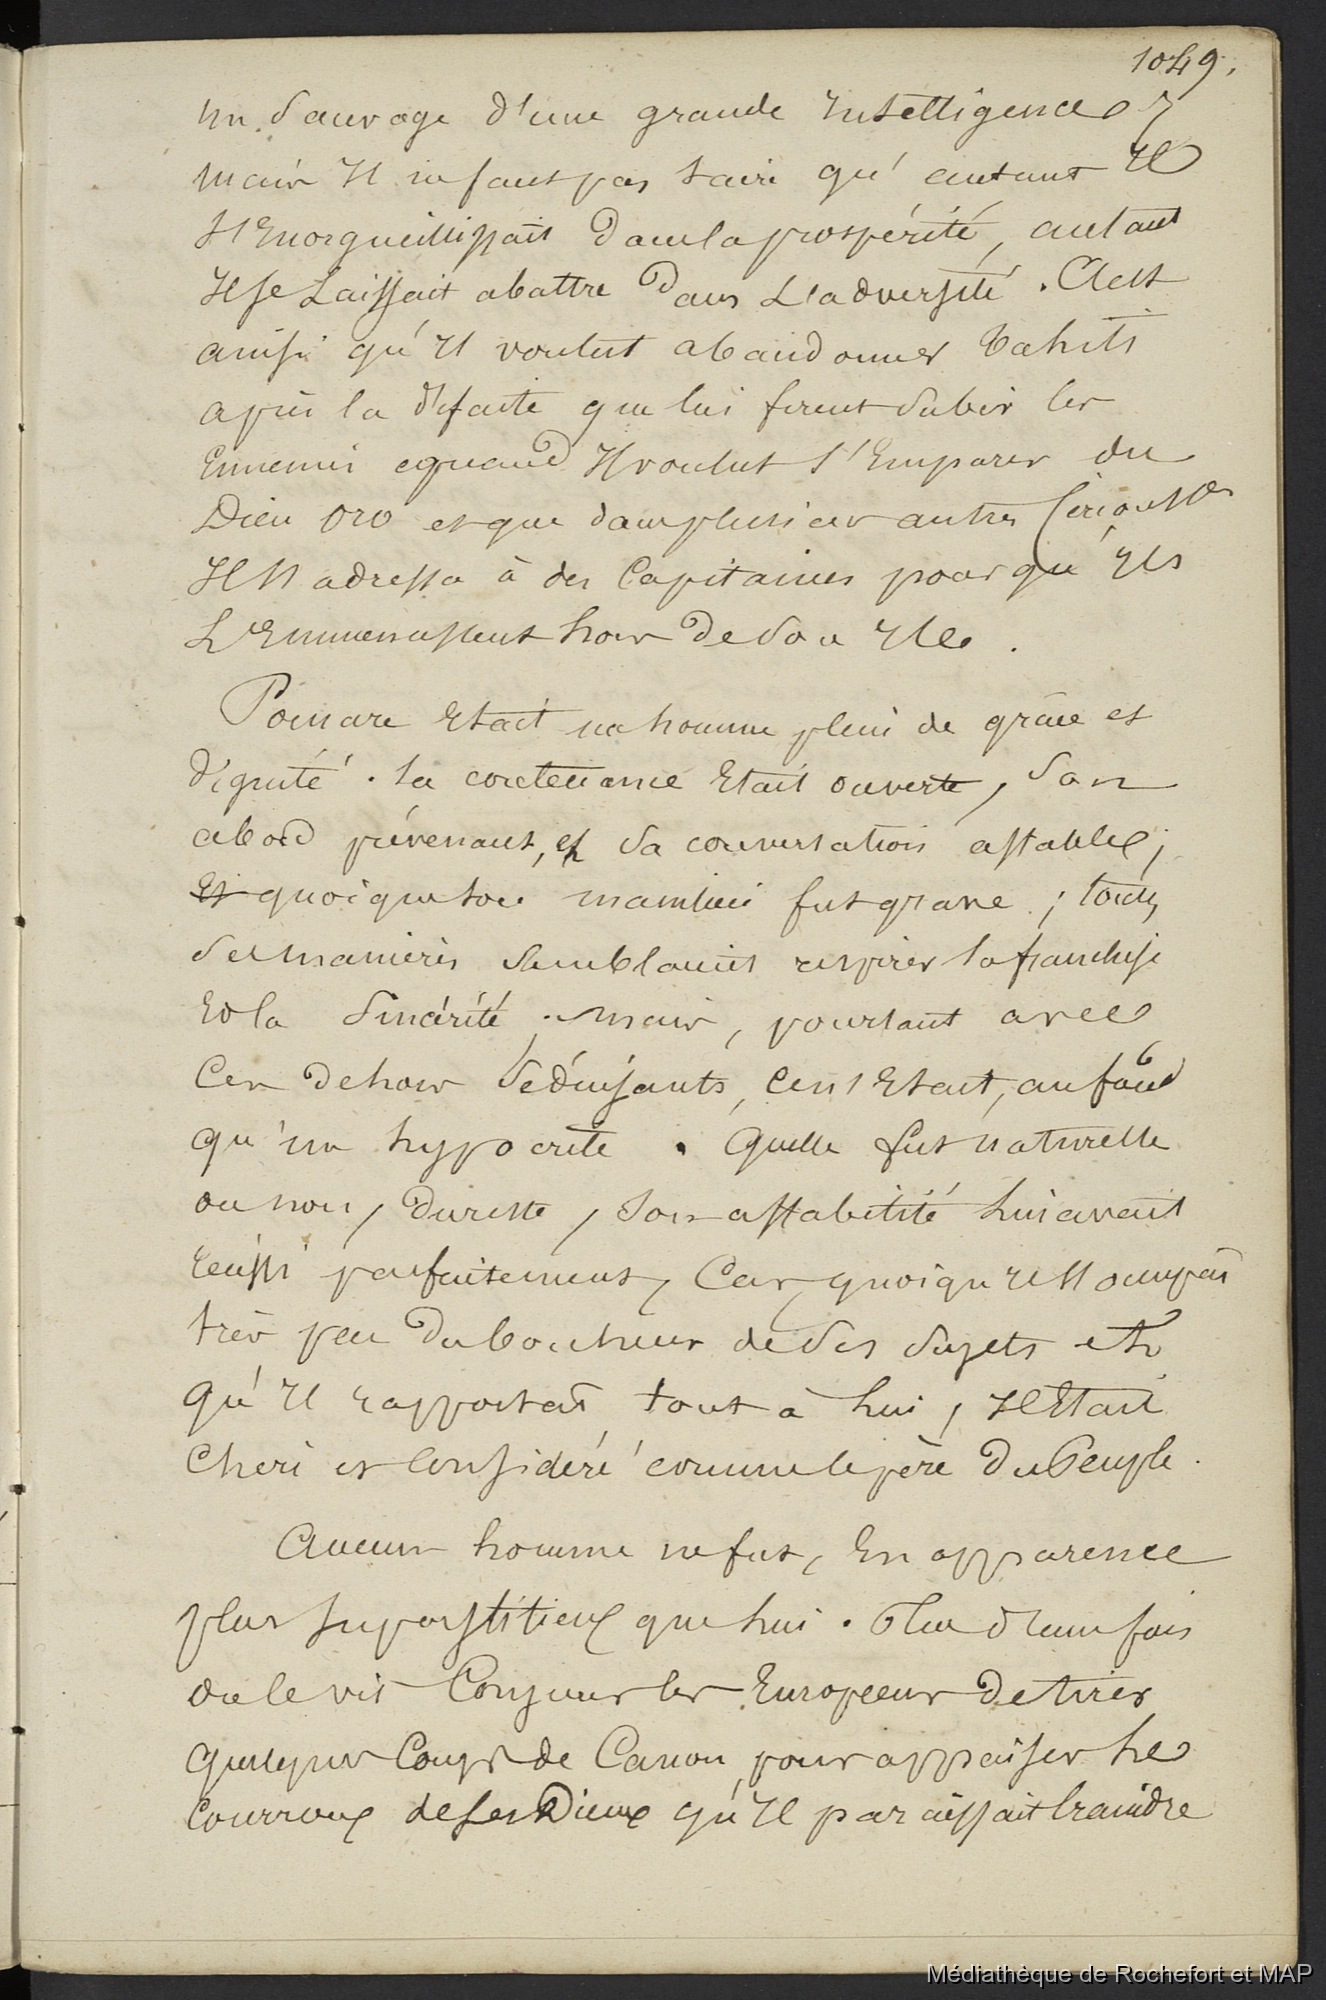 1049.
un Sauvage d'une grande Intelligence ;
mais Il ne faut pas taire qu'autant Il
S'Enorgueillissait dans la prospérité, autant
Il se Laissait abattre dans L'adversité. C'est
ainsi qu'Il voulut abandonner Tahiti
après la défaite que lui firent Subir les
Ennemis quand Il voulut S'Emparer du
Dieu Oro et que dans plusieurs autres
Il S'adressa à des Capitaines pour qu'Ils
L'Emmenassent hors de Son Ile.
Pomare Etait un homme plein de grâce et
dignité. Sa contenance Etait ouverte, Son
abord prévenant, et Sa conversation affable ;
Et quoique son maintien fut grave ; toutes
Ses manières Semblaient respirer la franchise
Et la Sincérité. mais, pourtant avec
Ces dehors Séduisants, Ce n'Etait, au fond
qu'un hypocrite. Quelle fut naturelle
ou non, du reste, Son affabilité lui avait
réussi parfaitement, Car, quoiqu'Il S'occupat
très peu du bonheur de Ses Sujets et
qu'Il rapportat tout à lui, Il Etait
Cheri et Considéré comme le père du Peuple.
Aucun homme ne fut, En apparence
plus Superstitieux que lui. Plus d'une fois
on le vit Conjurer les Européens de tirer
quelques Coups de Canon pour appaiser le
Courroux de Ses Dieux qu'Il paraissait Craindre
Médiathèque de Rochefort et MAP